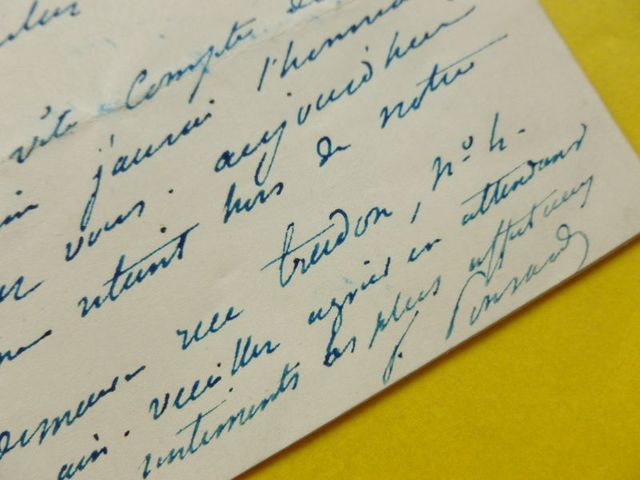 vite compte de
j'aurai l'honneur
vous. aujourdhui
retient hors de notre
demeure rue trudon, n.º 4.
ain. veuillez agréer en attendant
sentiments les plus affectueux
f. Ponsard